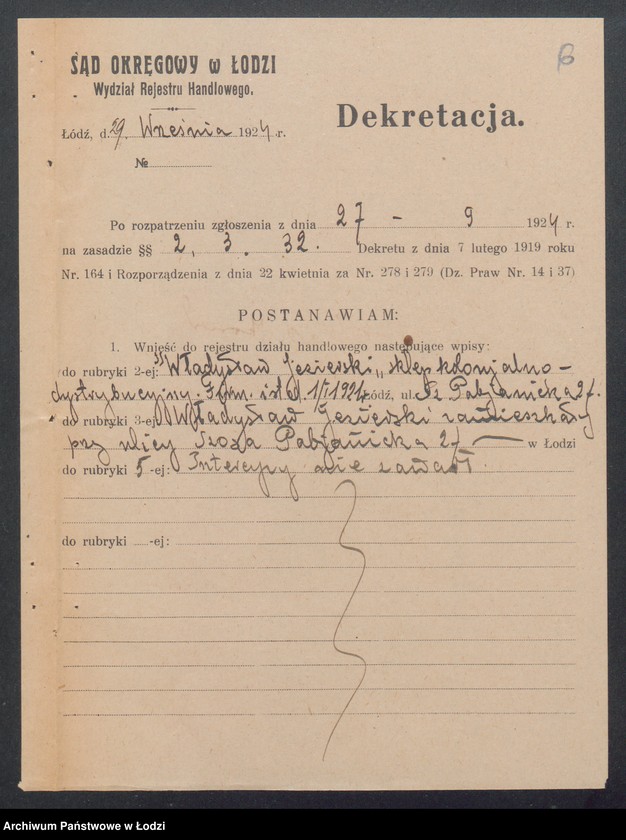 6
SĄD OKRĘGOWY w ŁODZI
Wydział Rejestru Handlowego.
Dekretacja.
Łódź, d. 29 Września 1924 r.
№
Po rozpatrzeniu zgłoszenia z dnia 27 - 9 1924 r.
na zasadzie §§ 2, 3. 32. Dekretu z dnia 7 lutego 1919 roku
Nr. 164 i Rozporządzenia z dnia 22 kwietnia za Nr. 278 i 279 (Dz. Praw Nr. 14 i 37)
POSTANAWIAM:
1. Wnieść do rejestru działu handlowego następujące wpisy:
do rubryki 2-ej: "Władysław Jezierski", sklep kolonjalno-
dystrybucyjny. Firm. istn. od 1/I 1924 Łódź, ul. Sz. Pabjanicka 27.
do rubryki 3-ej Władysław Jezierski zamieszkały
przy ulicy Szosa Pabjanicka 27 — w Łodzi
do rubryki 5-ej: Intercyzy nie zawarł.
do rubryki -ej:
Archiwum Państwowe w Łodzi